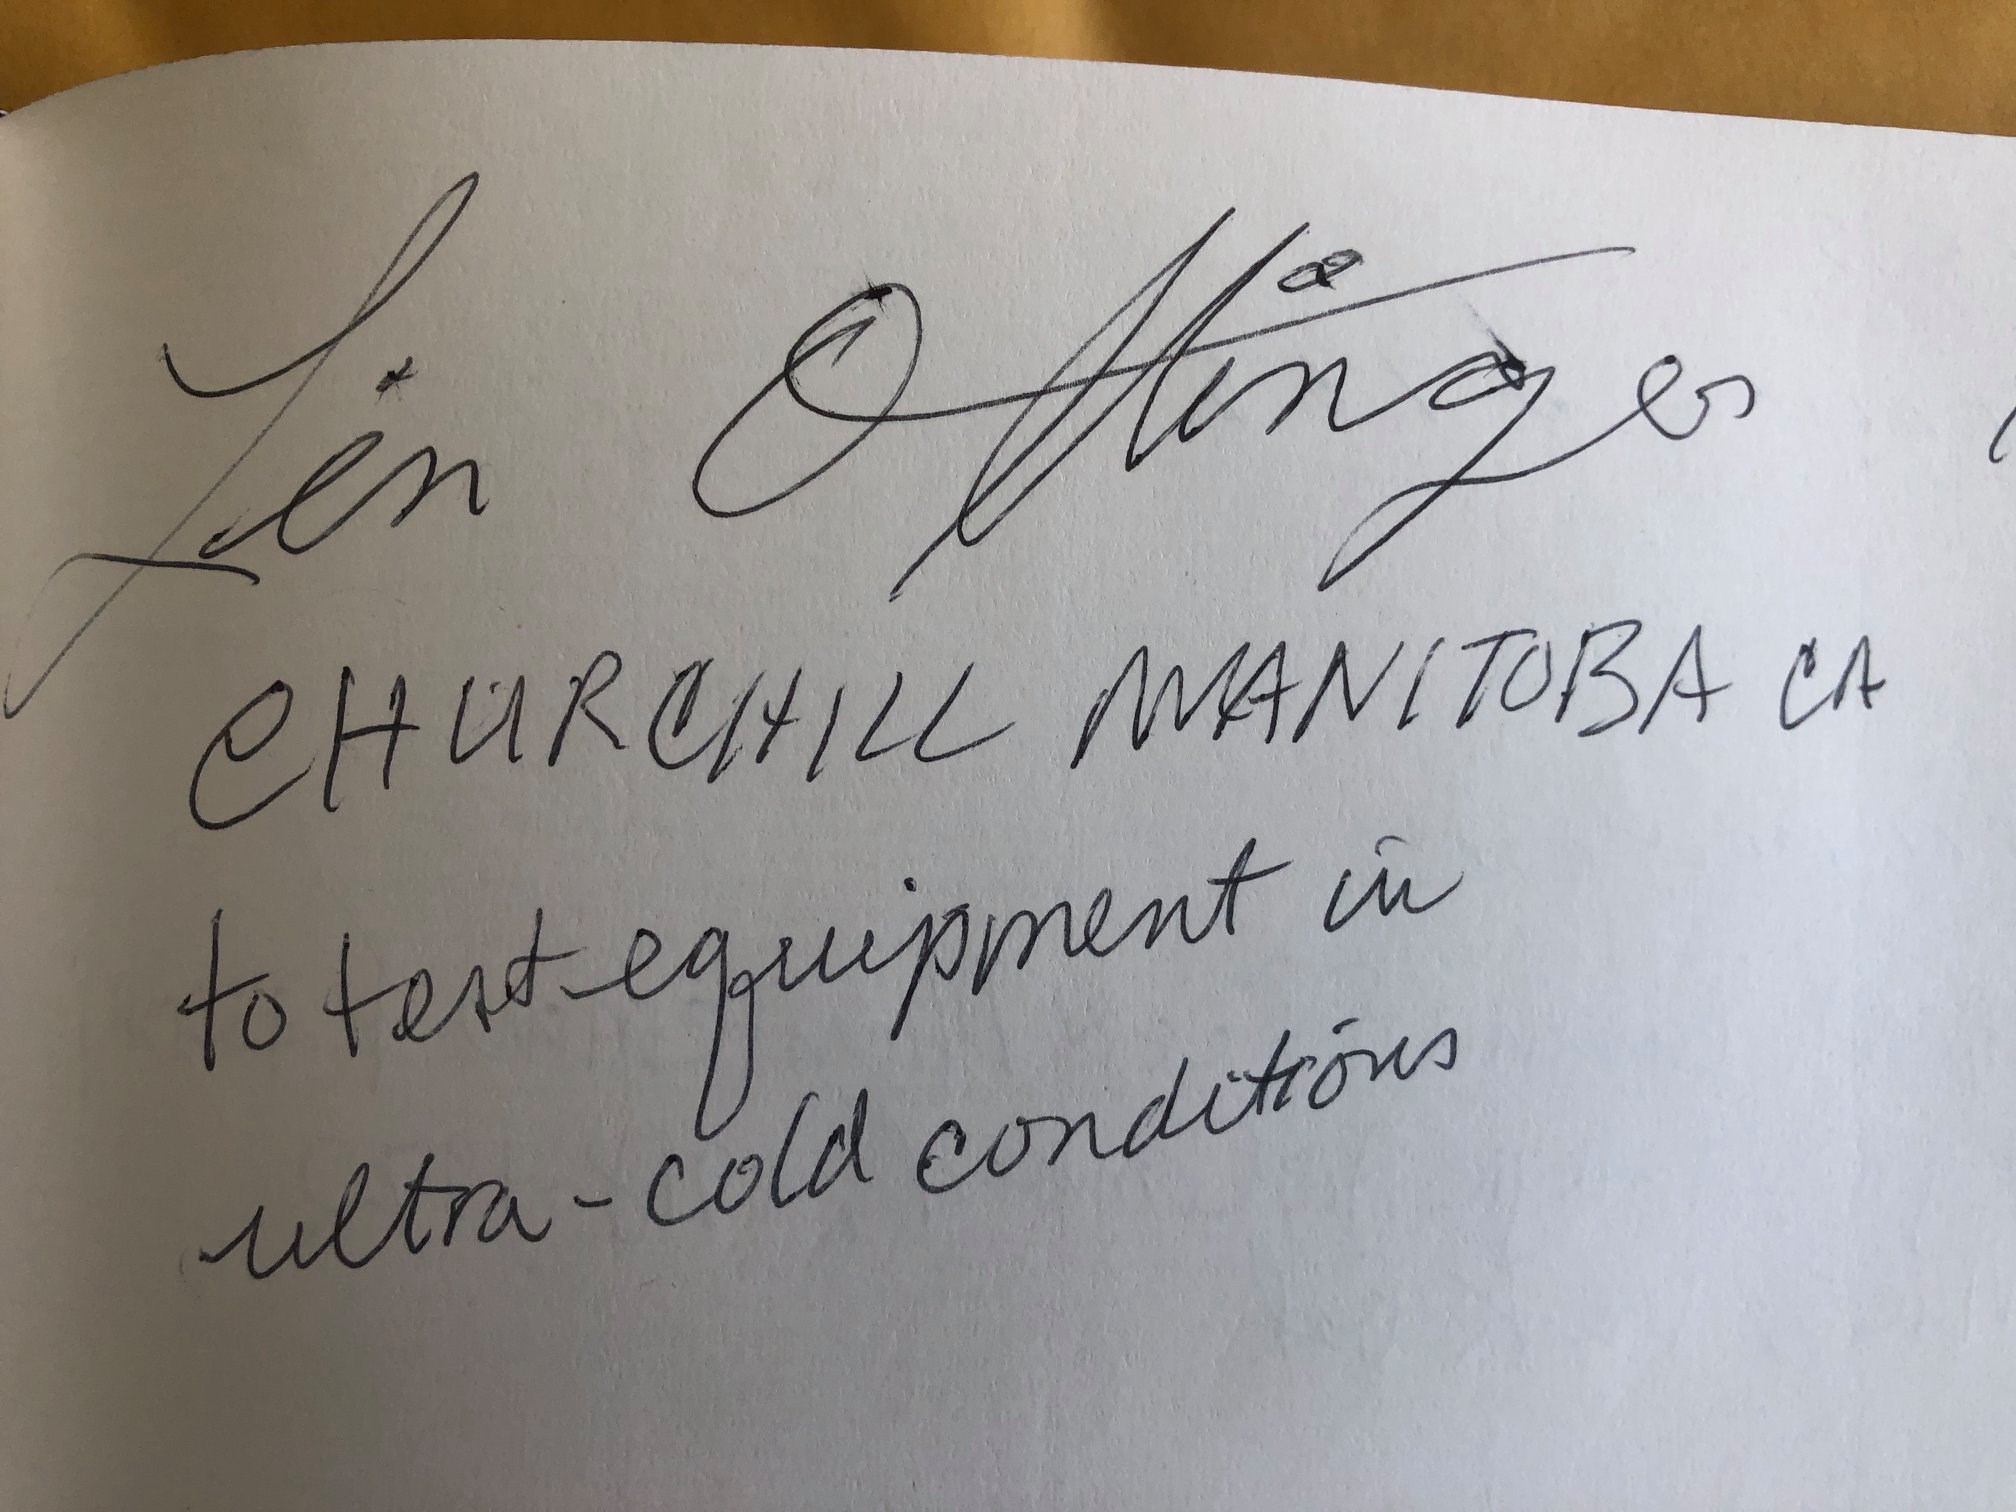 Len Ottinger
CHURCHILL MANITOBA CA
to test equipment in
ultra-cold conditions